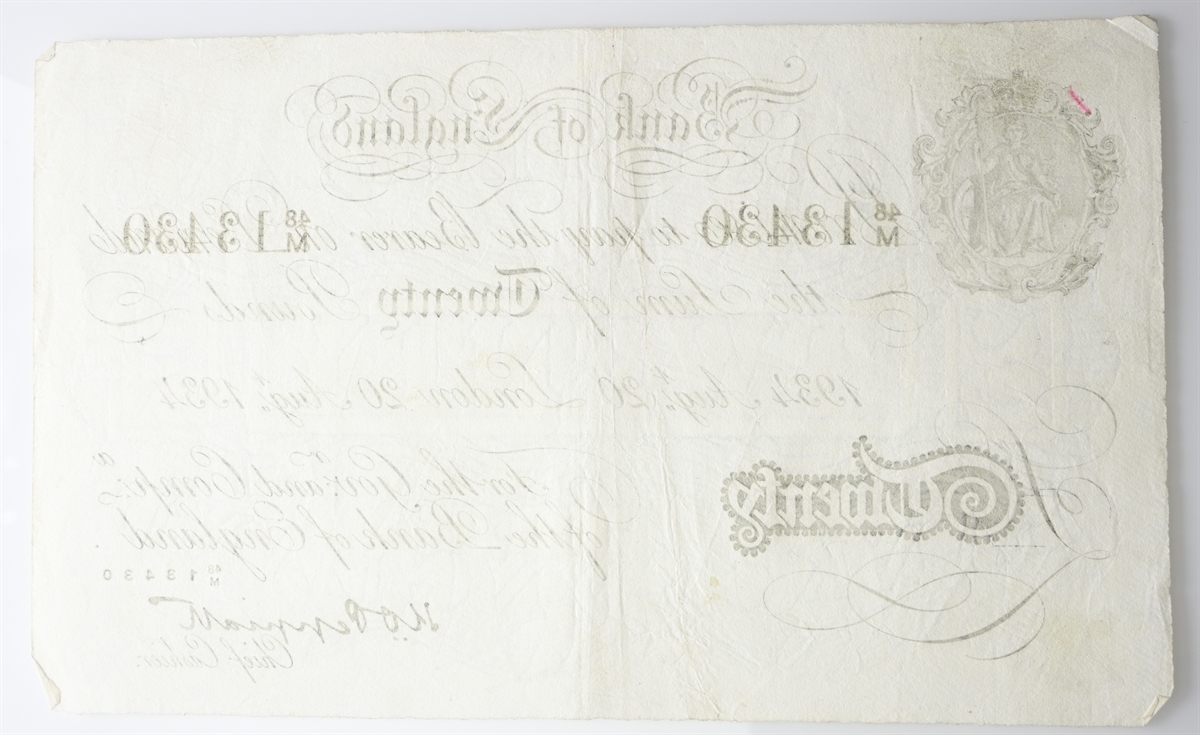 Bank of England
48 M 13430 to pay the Bearer on 48 M 13430
the Sum of Twenty Pounds
1934 Augt. 20 London 20 Augt. 1934
For the Govr. and Compa.
of the Bank of England.
Twenty
48 M 13430
K O Peppiatt
Chief Cashier.